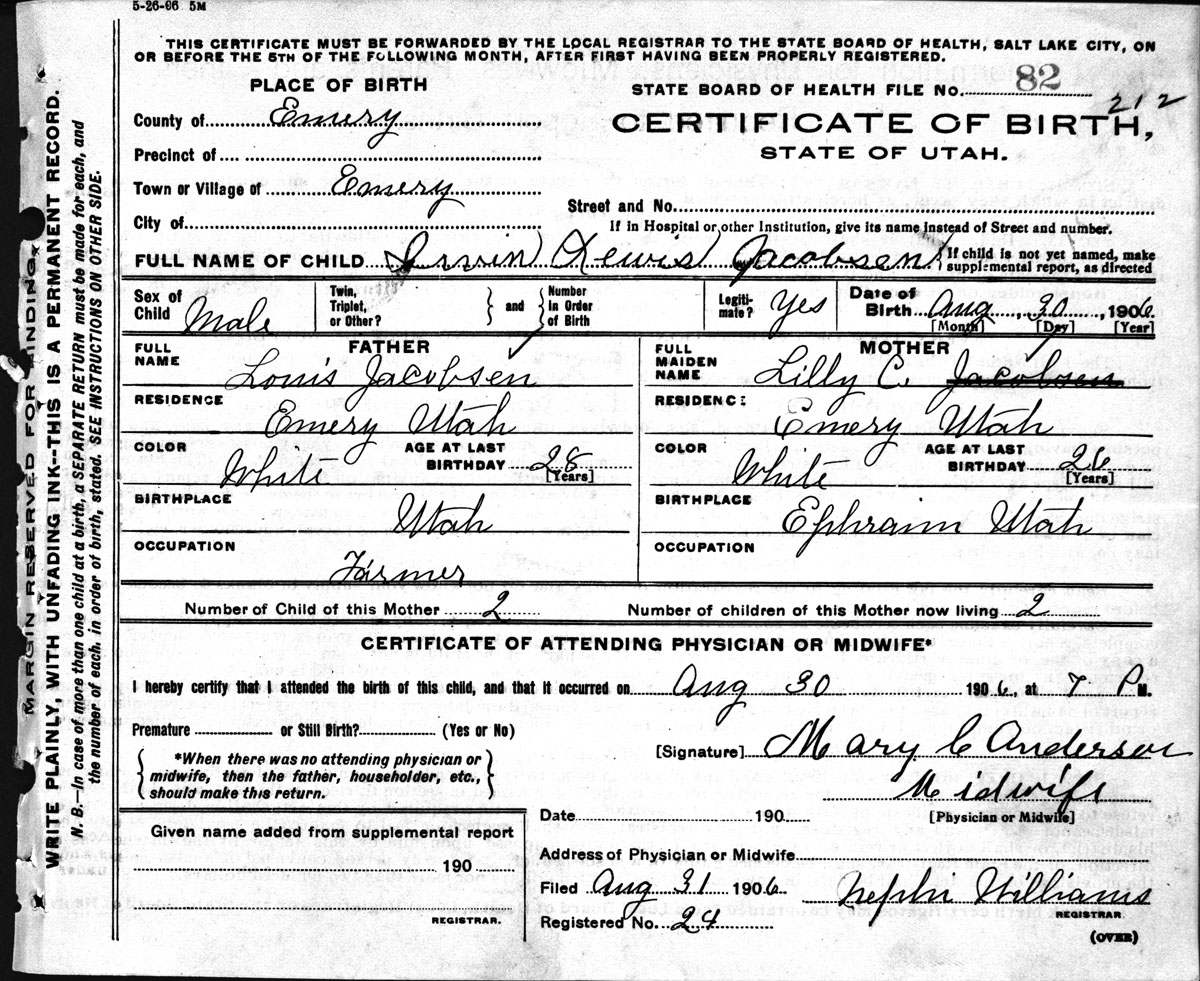 5-26-06 5M
THIS CERTIFICATE MUST BE FORWARDED BY THE LOCAL REGISTRAR TO THE STATE BOARD OF HEALTH, SALT LAKE CITY, ON
OR BEFORE THE 5TH OF THE FOLLOWING MONTH, AFTER FIRST HAVING BEEN PROPERLY REGISTERED.
PLACE OF BIRTH
STATE BOARD OF HEALTH FILE No. 82
212
County of Emery
CERTIFICATE OF BIRTH,
STATE OF UTAH.
Precinct of
Town or Village of Emery
Street and No.
City of
If in Hospital or other Institution, give its name instead of Street and number.
FULL NAME OF CHILD Irvin Lewis Jacobsen { If child is not yet named, make supplemental report, as directed
Sex of Child Male
Twin, Triplet, or Other? } and { Number in Order of Birth
Legiti-mate? Yes
Date of Birth Aug, 30, 1906
[Month] [Day] [Year]
FATHER
FULL NAME Louis Jacobsen
RESIDENCE Emery Utah
COLOR White AGE AT LAST BIRTHDAY 28 [Years]
BIRTHPLACE Utah
OCCUPATION Farmer
MOTHER
FULL MAIDEN NAME Lilly C. Jacobsen
RESIDENCE Emery Utah
COLOR White AGE AT LAST BIRTHDAY 26 [Years]
BIRTHPLACE Ephraim Utah
OCCUPATION
Number of Child of this Mother 2 Number of children of this Mother now living 2
CERTIFICATE OF ATTENDING PHYSICIAN OR MIDWIFE*
I hereby certify that I attended the birth of this child, and that it occurred on Aug 30 1906, at 7 P M.
Premature or Still Birth? (Yes or No)
[Signature] Mary C Anderson
Midwife
[Physician or Midwife]
*When there was no attending physician or
midwife, then the father, householder, etc.,
should make this return.
Date 190
Given name added from supplemental report
190
REGISTRAR.
Address of Physician or Midwife
Filed Aug 31 1906 Nephi Williams
REGISTRAR
Registered No. 24
(OVER)
MARGIN RESERVED FOR BINDING.
WRITE PLAINLY, WITH UNFADING INK--THIS IS A PERMANENT RECORD.
N. B.—In case of more than one child at a birth, a SEPARATE RETURN must be made for each, and
the number of each, in order of birth, stated. SEE INSTRUCTIONS ON OTHER SIDE.